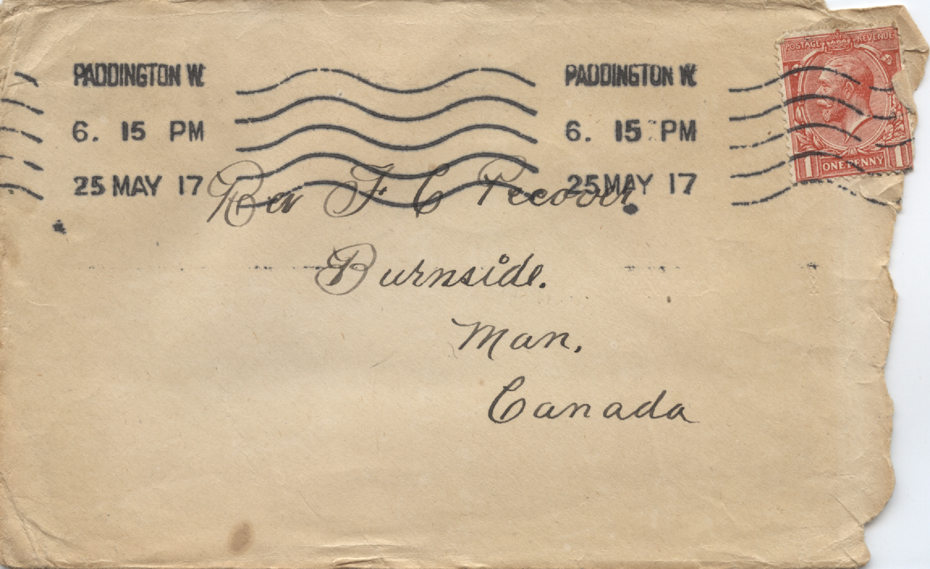 PADDINGTON W. PADDINGTON W.
6. 15 PM 6. 15 PM
25 MAY 17 25 MAY 17
POSTAGE REVENUE
1 ONE PENNY 1
Rev F C Pecover
Burnside.
Man.
Canada